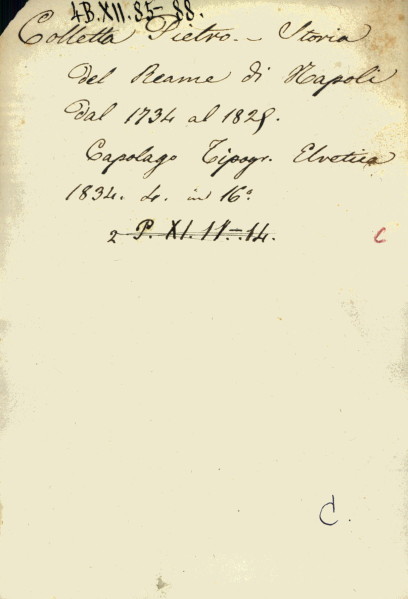 4B.XII.85-88.
Colletta Pietro. - Storia
del Reame di Napoli
dal 1734 al 1825.
Capolago Tipogr. Elvetica
1834. 4. in 16°
2 P. XI. 11-14.
C
C.